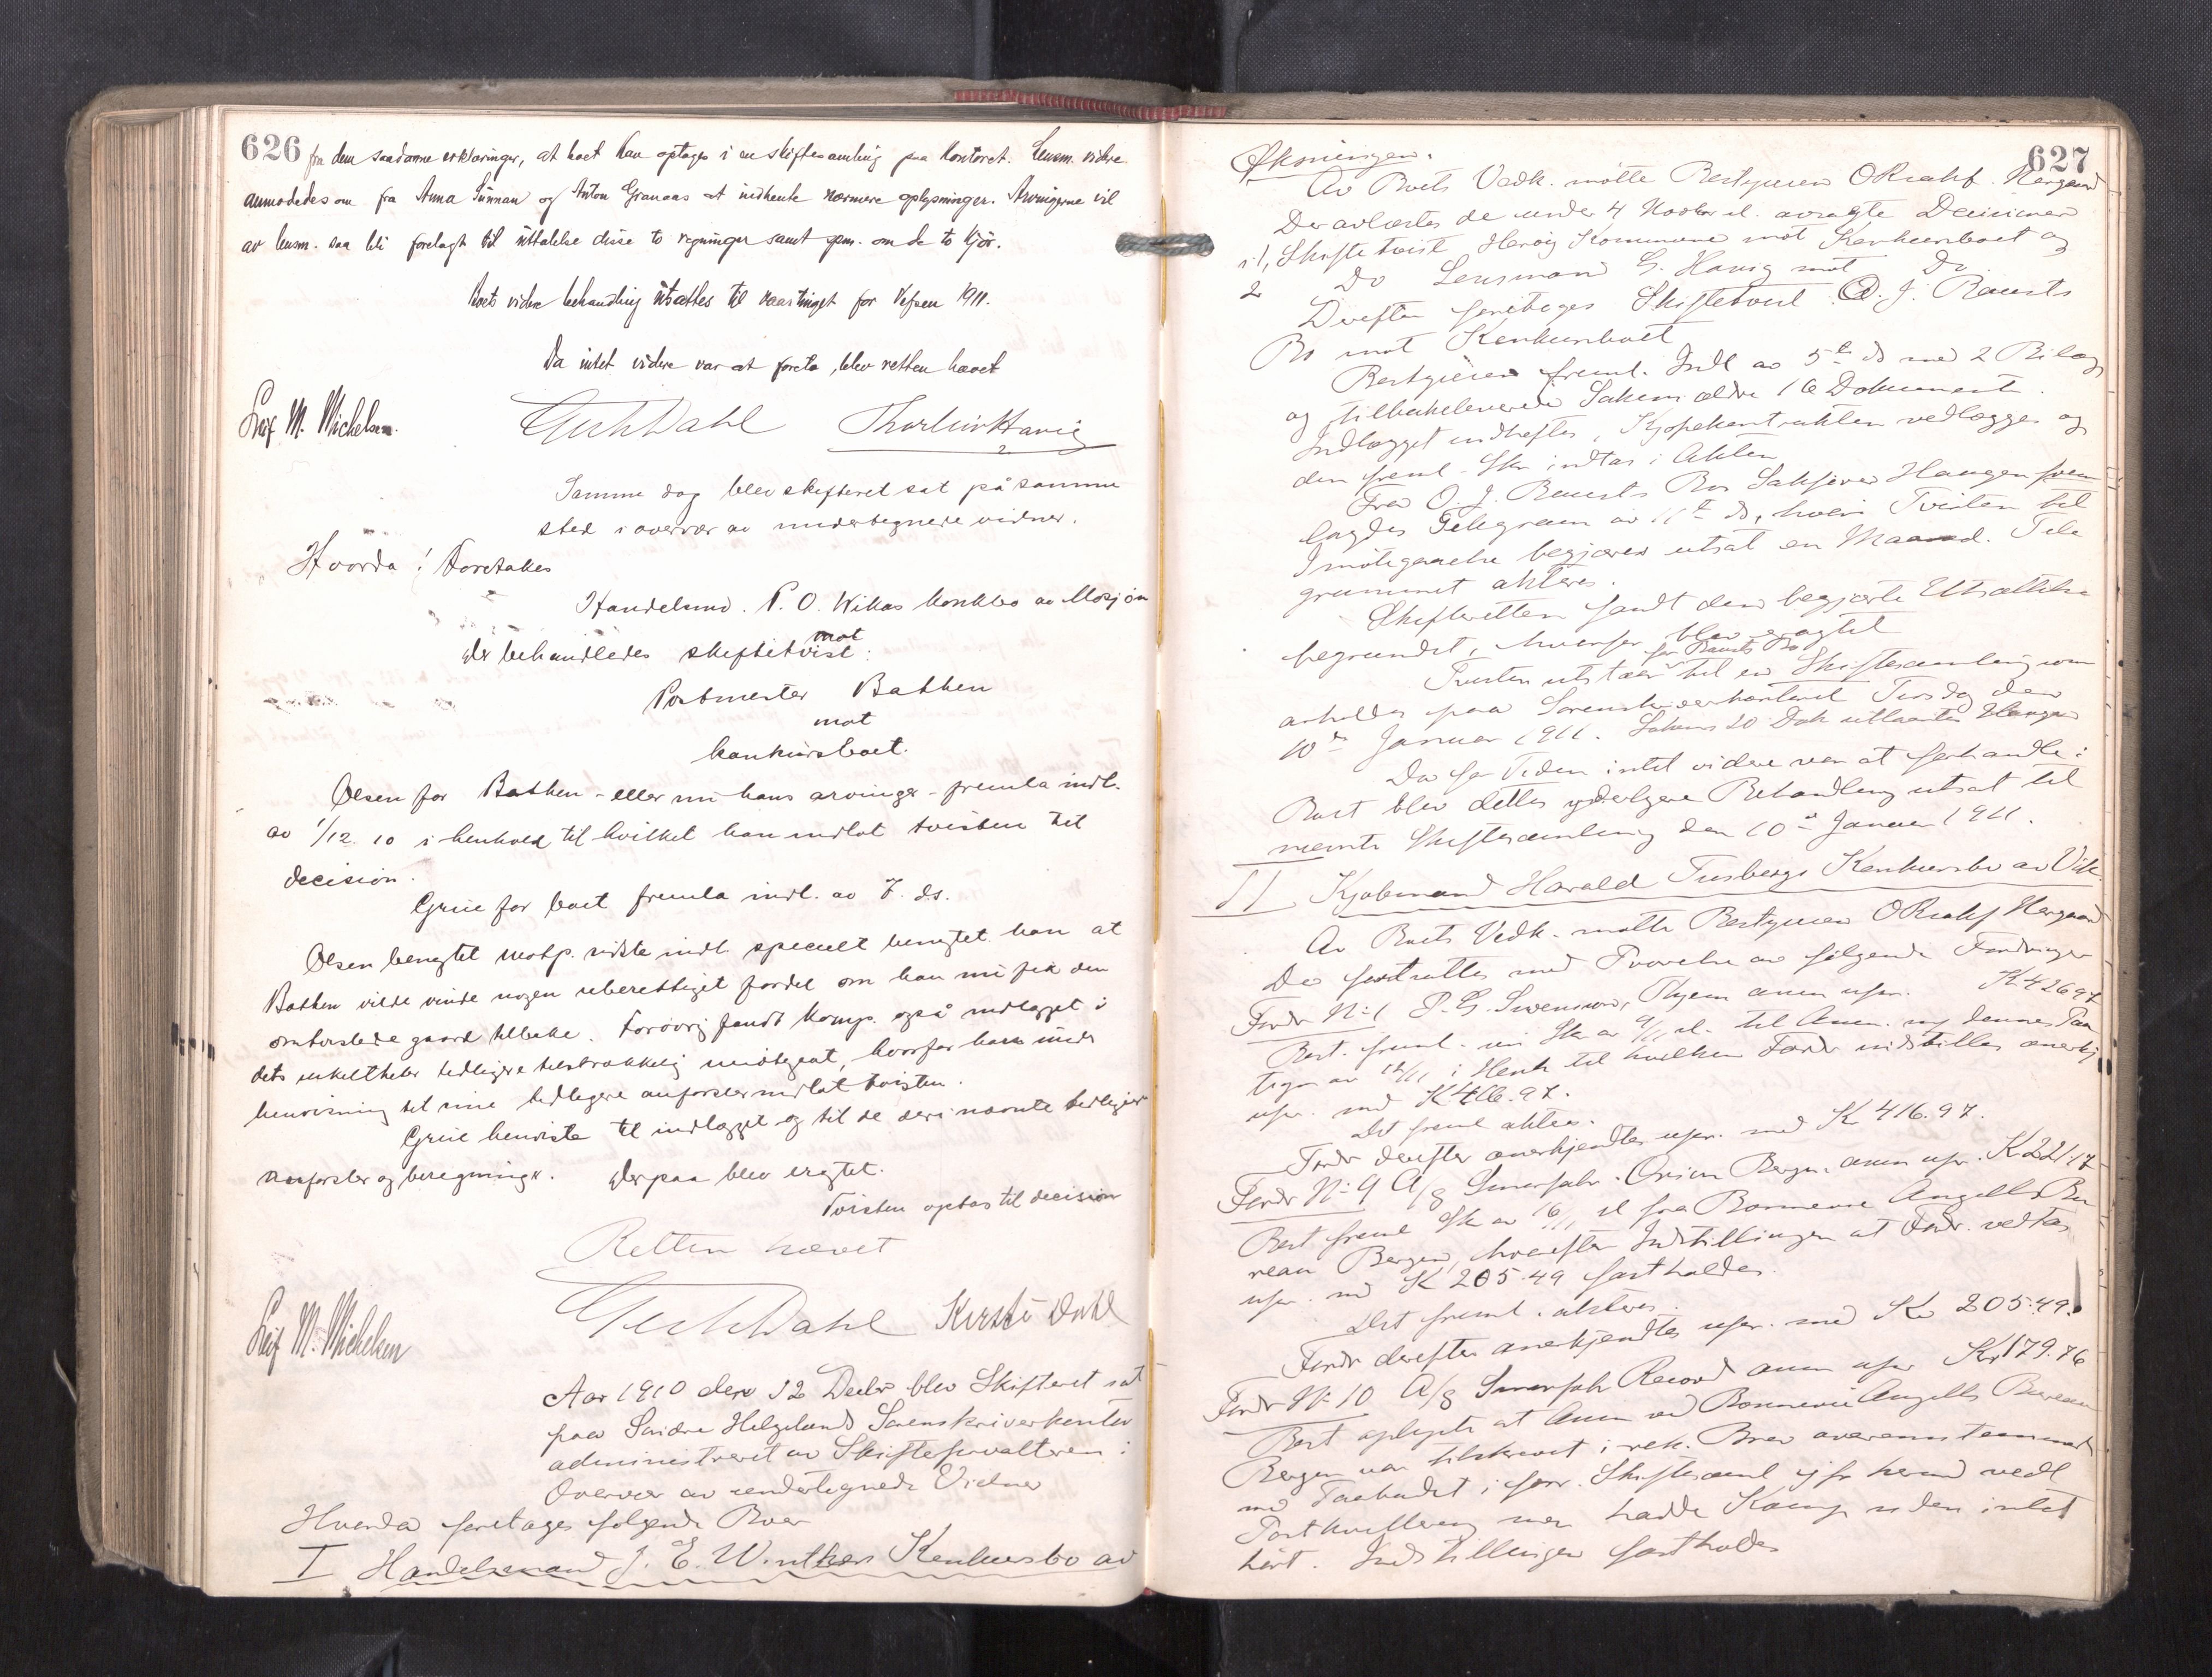 626
fra dem saadanne erklæringer, at boet kan optages i en skiftesamling paa kontoret. Lensm. videre
anmodedes om fra Anna Sünnan og Anton Granaas at indhente nærmere oplysninger. Arvingerne vil
av lensm. saa bli forelagt til üttalelse disse to regninger samt spm. om de to kjør.
Boets videre behandling ütsattes til vaartinget for Vefsen 1911.
Da intet videre var at foreta, blev retten hævet
Leif M. Michelsen. Thorleiv Havig
Samme dag blev skifteret sat på samme
sted i overvær av undertegnede vidner.
Hvorda! Foretakes
Handelsmd. P. O. Wikas konkbo av Mosjøen
Der behandledes skiftetvist:
Postmester Bathen
mot
konkursboet.
Olsen for Bathen - eller nu hans arvinger - fremla indl.
av 1/12. 10 i henhold til hvilket han indlot tvisten til
decision.
Grüe for boet fremla indl. av 7. ds.
Olsen benegtet motp. sidste indl. specielt benegtet han at
Bathen vilde vinde nogen uberettiget fordel om han nu fik den
omtvistede gaard tilbake. Forøvrig fandt komp. også indlægget i
dets enkeltheter tidligere tilstrækkelig imøtegaat, hvorfor han under
henvisning til sine tidligere anførsler indlot tvisten.
Grüe henviste til indlægget og til de deri nævnte tidligere
anførsler og beregninger. Derpaa blev eragtet.
Tvisten optas til decision
Retten hævet
Leif M. Michelsen Kirsti Dahl
Aar 1910 den 12 Decbr blev Skifteret sat
paa Søndre Helgelands Sorenskriverkontor
administreret av Skifteforvalteren i
Overvær av undertegnede Vidner
Hvorda foretages følgende Boer
I Handelsmand J. E. Winthers Konkursbo av
627
Økningen.
Av Boets Vedk. møtte Bestyreren ORsakf. Hergaard
Der avlæstes de under 4 Novbr d. avsagte Decisioner
i 1, Skiftetvist Herøy Kommune mot Konkursboet og
2 Do Lensmand G. Havig mot Do
Derefter foretages Skiftetvist O. J. Rausts
Bo mot Konkursboet
Bestyreren freml. Indl av 5te ds med 2 Bilag
og tilbakeleverede Sakens ældre 16 Dokumenter.
Indlægget indheftes, Kjøpekontrakten vedlægges og
den freml. Skr indtas i Akten
Fra O. J. Rausts Bo Sakfører Haugen frem
lagdes Telegram av 11te ds, hvori Tvisten til
Imøtegaaelse begjæres utsat en Maaned. Tele
grammet akteres.
Skifteretten fandt den begjærte Utsættelse
begrundet, hvorfor blev eragtet
for Rausts Bo
Tvisten utstaar til en Skiftesamling som
avholdes paa Sorenskriverkontoret Tirsdag den
10de Januar 1911. Sakens 20 Dok utlaantes Haugen
Da for Tiden intet videre var at forhandle i
Boet blev dettes yderligere Behandling utsat til
nævnte Skiftesamling den 10de Januar 1911.
II Kjøbmand Harald Tusbergs Konkursbo av Vik.
Av Boets Vedk. møtte Bestyreren ORsakf Hergaard
Der fortsattes med Prøvelse av følgende Fordringer
Fordr No 1 P. G. Svensson, Thjem anm upr. K 426 97
Best. freml. sin Skr av 9/11 d. til Anm. og dennes Paa
tegn av 12/11 i Henh til hvilken Fordr indstilles anerkj
upr. med K 416.97.
Det freml akteres.
Fordr derefter anerkjendtes upr. med K 416.97.
Fordr No 9 A/S Smørfabr. Orion Bergen. anm upr. K 221 17
Best freml Skr av 16/11 d fra Bonnevie Angells Bu
reau Bergen, hvorefter Indstillingen at Fordr. vedtas
upr. med K 205.49 fastholdes.
Det freml. akteres.
Fordr derefter anerkjendtes upr. med Kr 205.49.
Fordr No 10 A/S Smørfabr Record anm upr Kr 179.76
Best oplyste at Anm ved Bonnevie Angells Bureau
Bergen var tilskrevet i rek. Brev overensstemmende
med Paabudet i forr. Skiftesaml jfr herved vedl
Postkvittering men hadde Komp siden intet
hørt. Indstillingen fastholdes